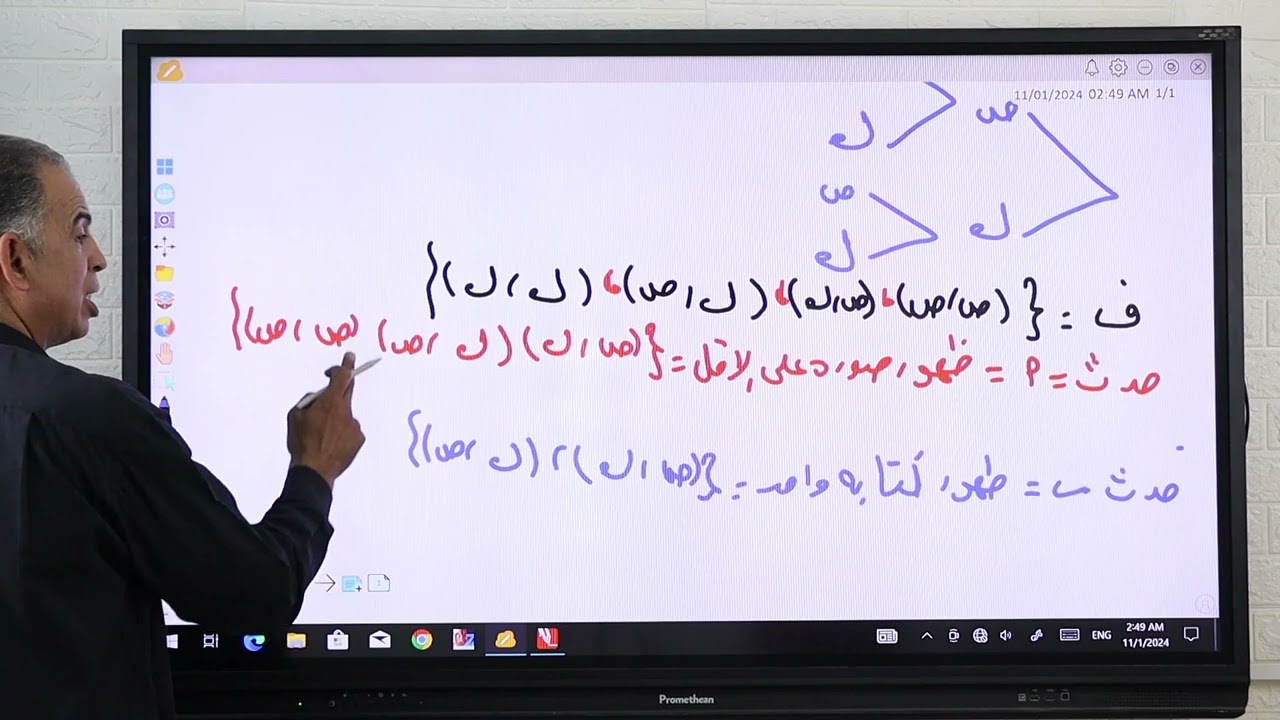 11/01/2024 02:49 AM 1/1
ص
ل
ص
ل
ل
ف = { (ص،ص) ، (ص،ل) ، (ل،ص) ، (ل،ل) }
حدث P = ظهور صورة على الاقل = { (ص،ل) (ل،ص) (ص،ص) }
حدث ب = ظهور كتابه واحده = { (ص،ل) ، (ل،ص) }
ENG
2:49 AM
11/1/2024
Promethean